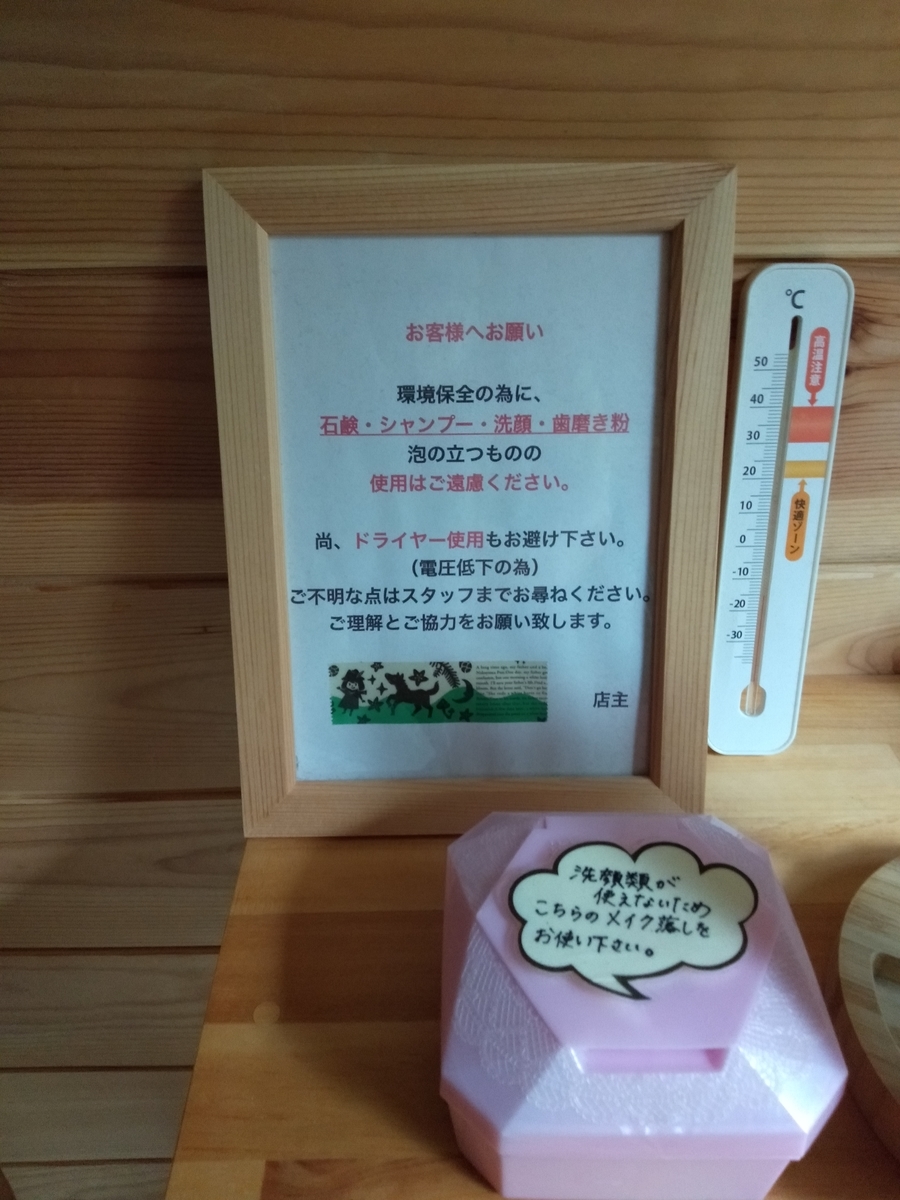 お客様へお願い
環境保全の為に、
石鹸・シャンプー・洗顔・歯磨き粉
泡の立つものの
使用はご遠慮ください。
尚、ドライヤー使用もお避け下さい。
（電圧低下の為）
ご不明な点はスタッフまでお尋ねください。
ご理解とご協力をお願い致します。
店主
℃
高温注意
50
40
30
20
10
0
-10
-20
-30
快適ゾーン
洗顔類が
使えないため
こちらのメイク落しを
お使い下さい。